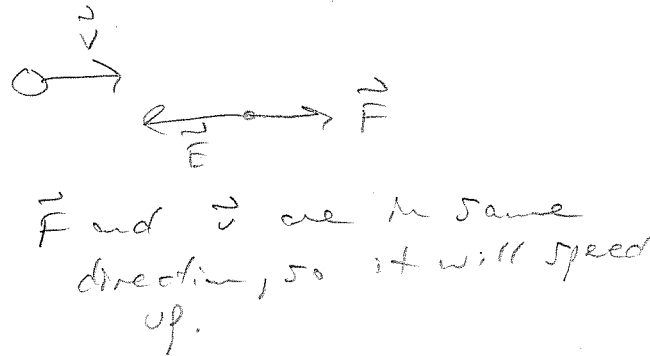 v⃗
F⃗
E⃗
F⃗ and v⃗ are in same
direction, so it will speed
up.